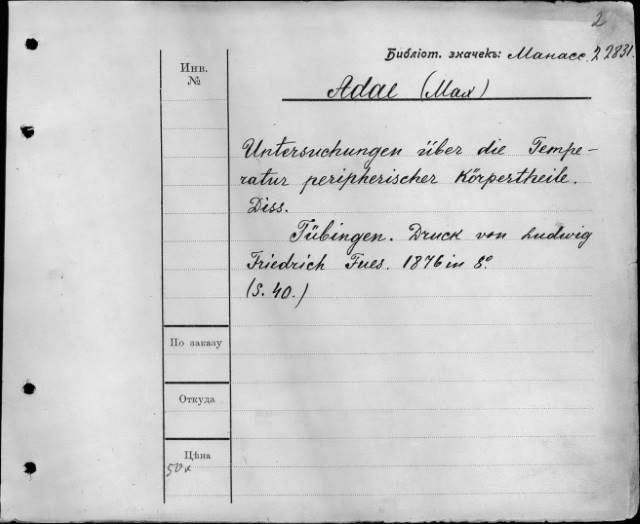 2
Библіот. значекъ: Манасс. 22831.
Инв.
№
Adae (Max)
Untersuchungen über die Tempe-
ratur peripherischer Körpertheile.
Diss.
Tübingen. Druck von Ludwig
Friedrich Fues. 1876 in 8º.
(S. 40.)
По заказу
Откуда
Цѣна
50 к